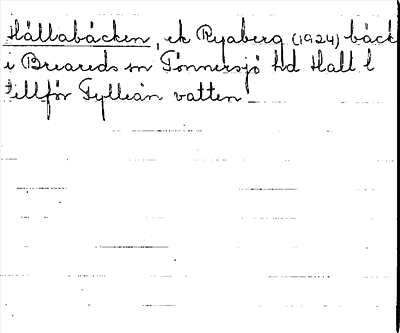 Hållabäcken, ek Ryaberg (1924) bäck
i Breareds sn Tönnersjö hd Hall l
tillför Fylleån vatten